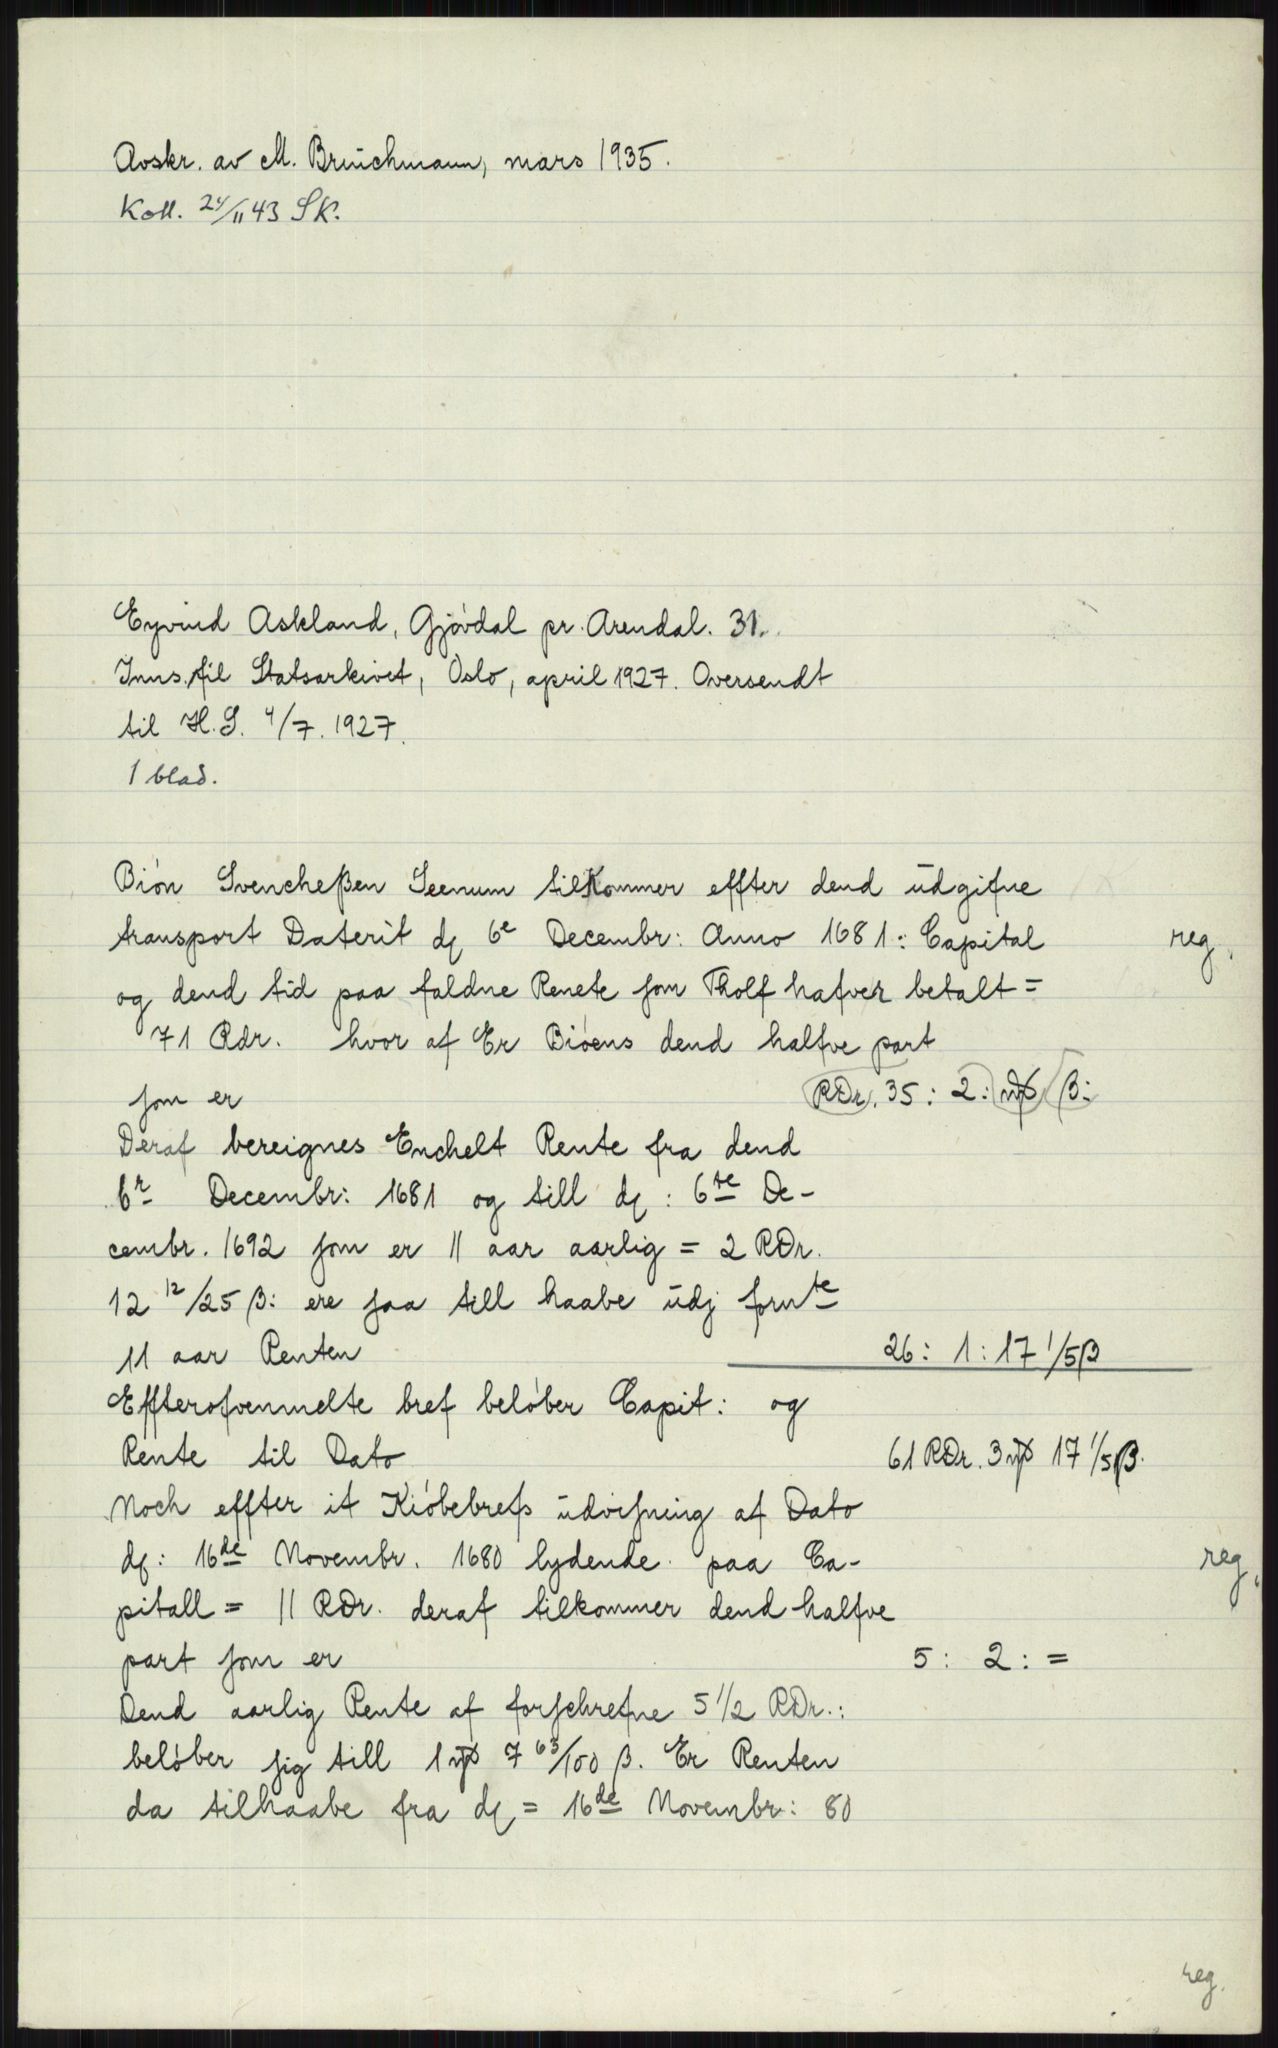 Avskr. av M. Bruichmann, mars 1935.
Koll. 24/11 43 SK.
Eyvind Askland, Gjövdal pr. Arendal. 31.
Inns. til Statsarkivet, Oslo, april 1927. Oversendt
til H.S. 4/7. 1927.
1 blad.
Biön Svencheßen Seenum tilkommer effter dend üdgifne
transport Daterit d. 6e Decembr: Anno 1681: Capital
reg.
og dend tid paa faldne Renete som Tholf hafver betalt =
71 Rdr. hvor af Er Biöens dend halfve part
som er RDr. 35: 2: mȹ ß:
Deraf bereignes Enchelt Rente fra dend
6r Decembr: 1681 og till d: 6te De-
cembr. 1692 som er 11 aar aarlig = 2 RDr.
12 12/25 ß: ere saa till haabe üdj fornte
11 aar Renten 26: 1: 17 1/5 ß
Effterofvenmelte bref belöber Capit: og
Rente til Dato 61 RDr. 3 mȹ 17 1/5 ß.
Noch effter it Kiöbebrefs üdvisning af Dato
d: 16de Novembr. 1680 lydende paa Ca-
reg.
pitall = 11 RDr. deraf tilkommer dend halfve
part som er 5: 2: =
Dend aarlig Rente af forschrefne 5 1/2 RDr.:
belöber sig till 1 mȹ 7 63/100 ß. Er Renten
da tilhaabe fra d = 16de Novembr: 80
reg.